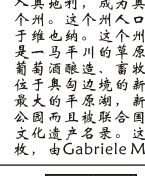 入奥地利，成为奥
个州。这个州人口
于维也纳。这个州
是一马平川的草原
葡萄酒酿造、畜牧
位于奥匈边境的新
最大的平原湖，新
公园而且被联合国
文化遗产名录。这
枚，由Gabriele M